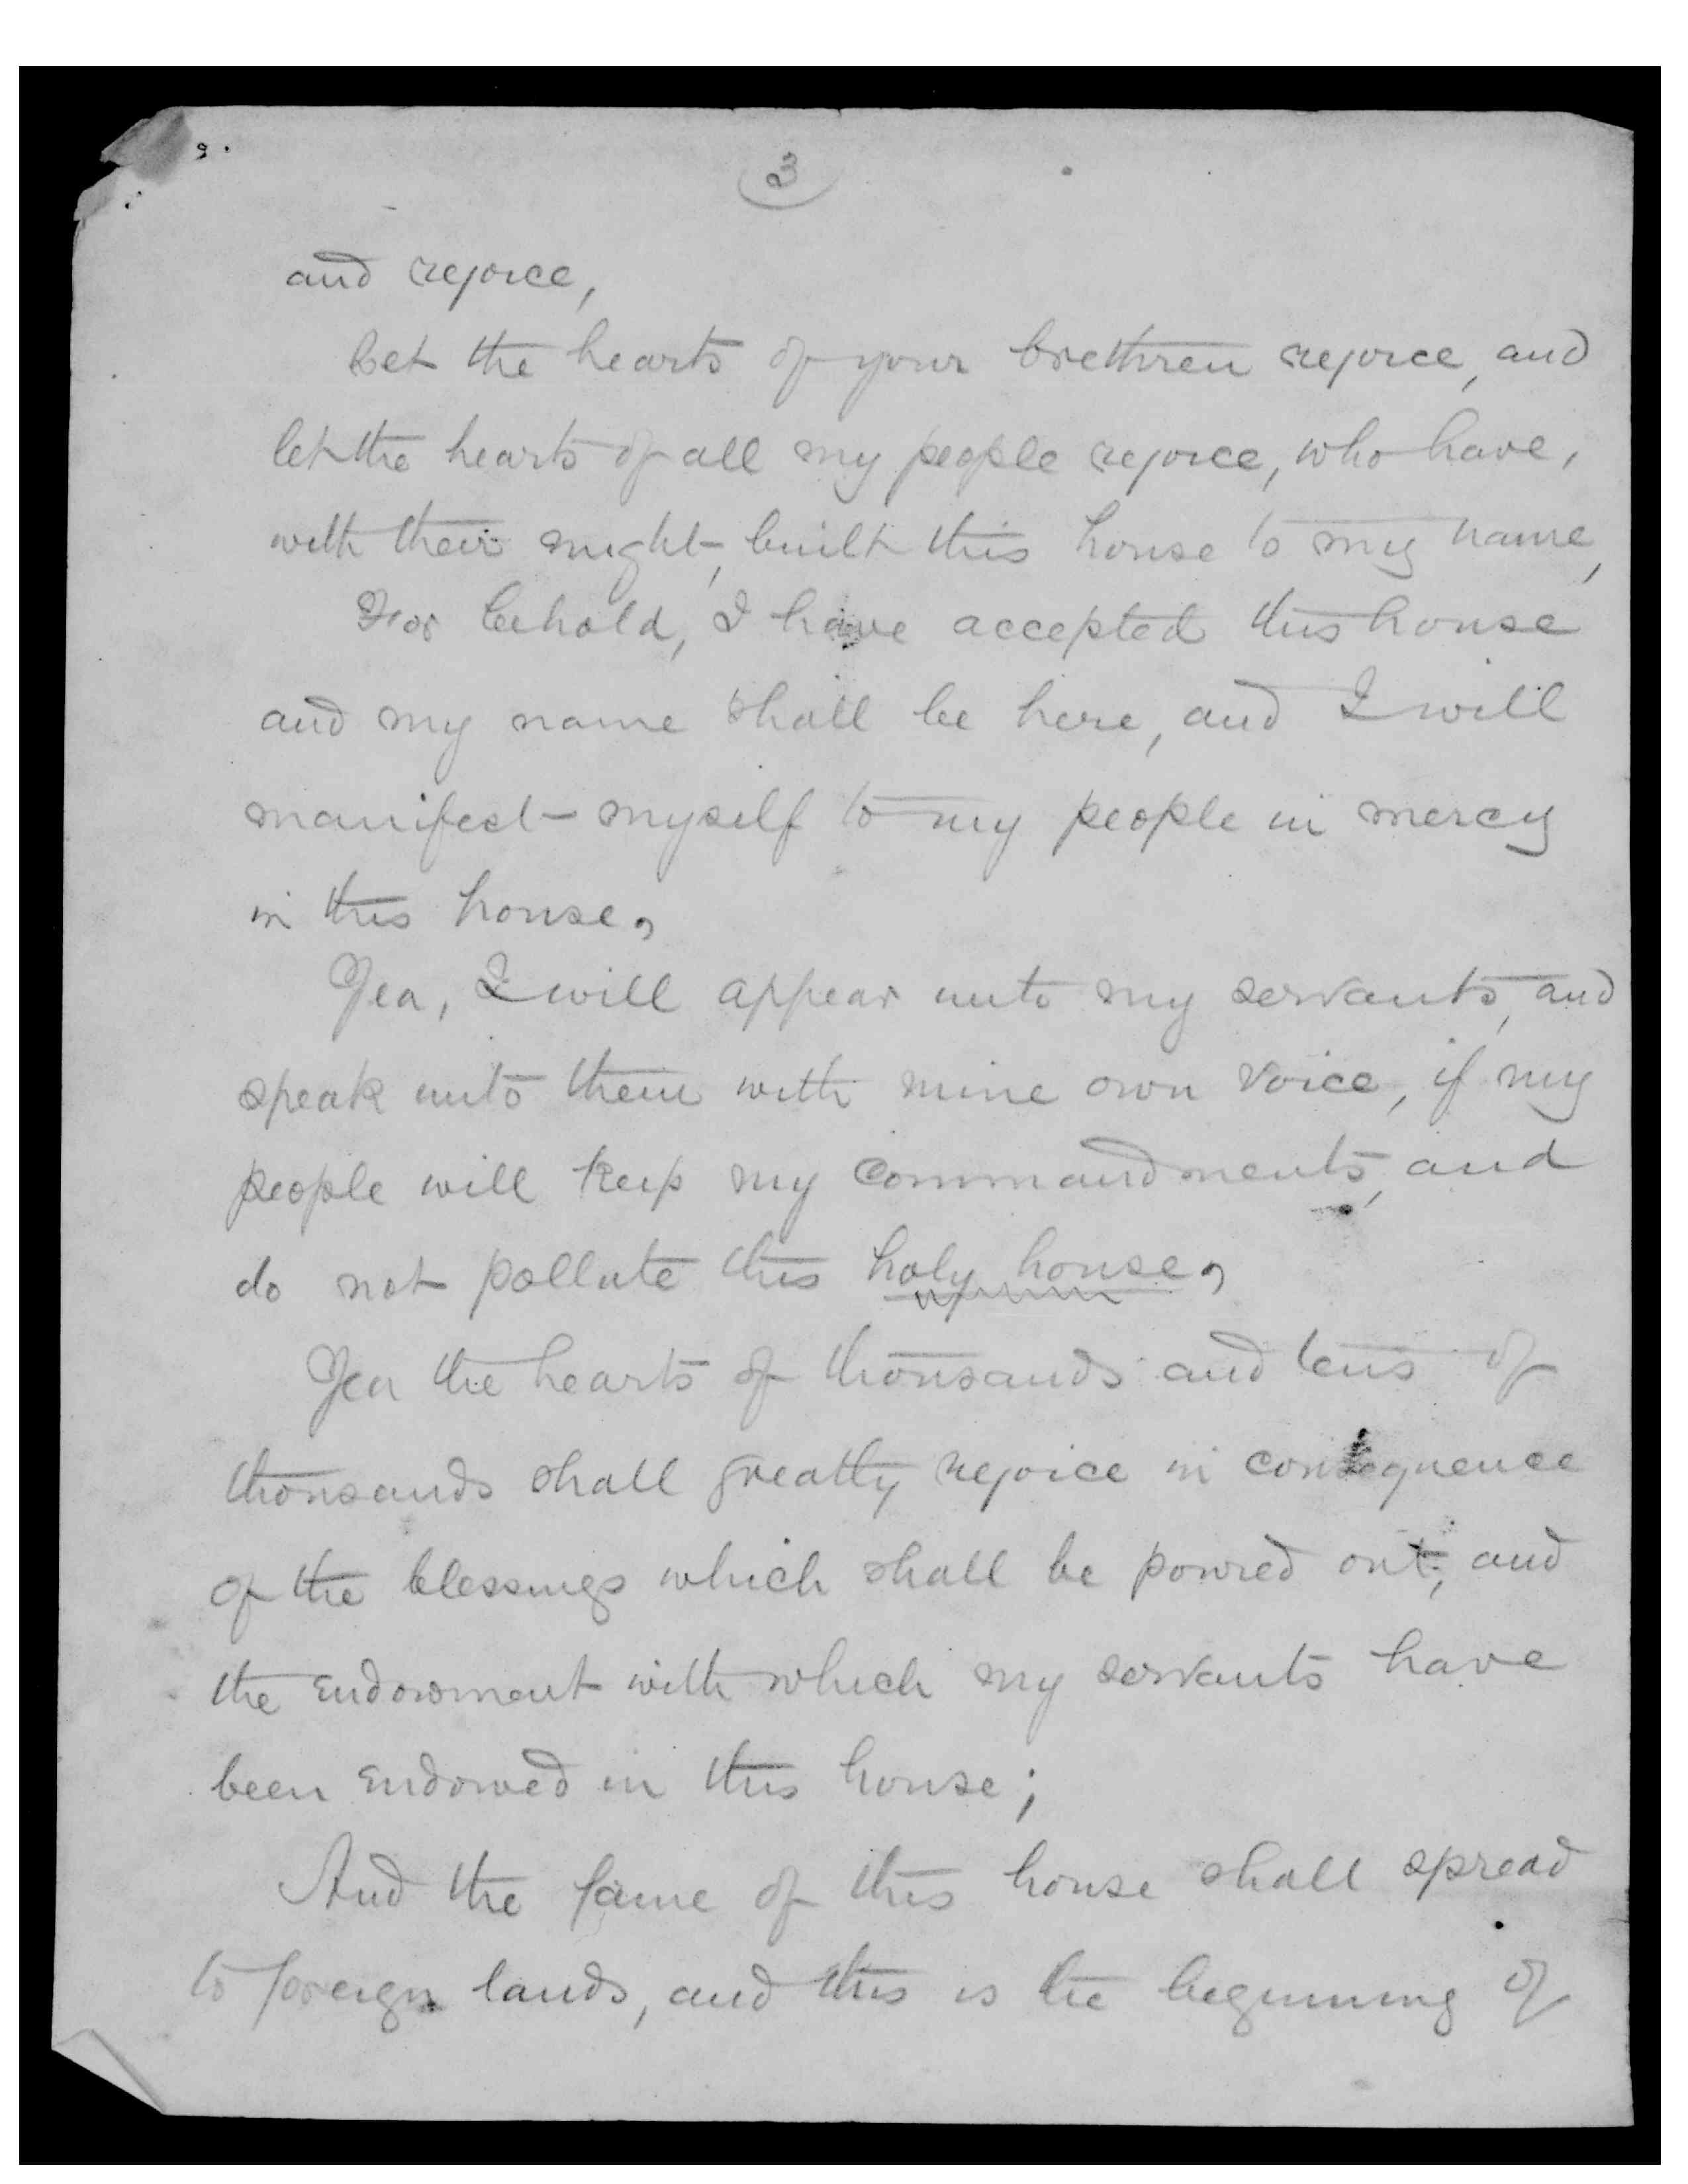 3
and rejoice,
Let the hearts of your brethren rejoice, and
let the hearts of all my people rejoice, who have,
with their might, built this house to my name,
For behold, I have accepted this house
and my name shall be here, and I will
manifest myself to my people in mercy
in this house,
Yea, I will appear unto my servants, and
speak unto them with mine own voice, if my
people will keep my commandments, and
do not pollute this holy house,
Yea the hearts of thousands and tens of
thousands shall greatly rejoice in consequence
of the blessings which shall be poured out, and
the endowment with which my servants have
been endowed in this house;
And the fame of this house shall spread
to foreign lands, and this is the beginning of